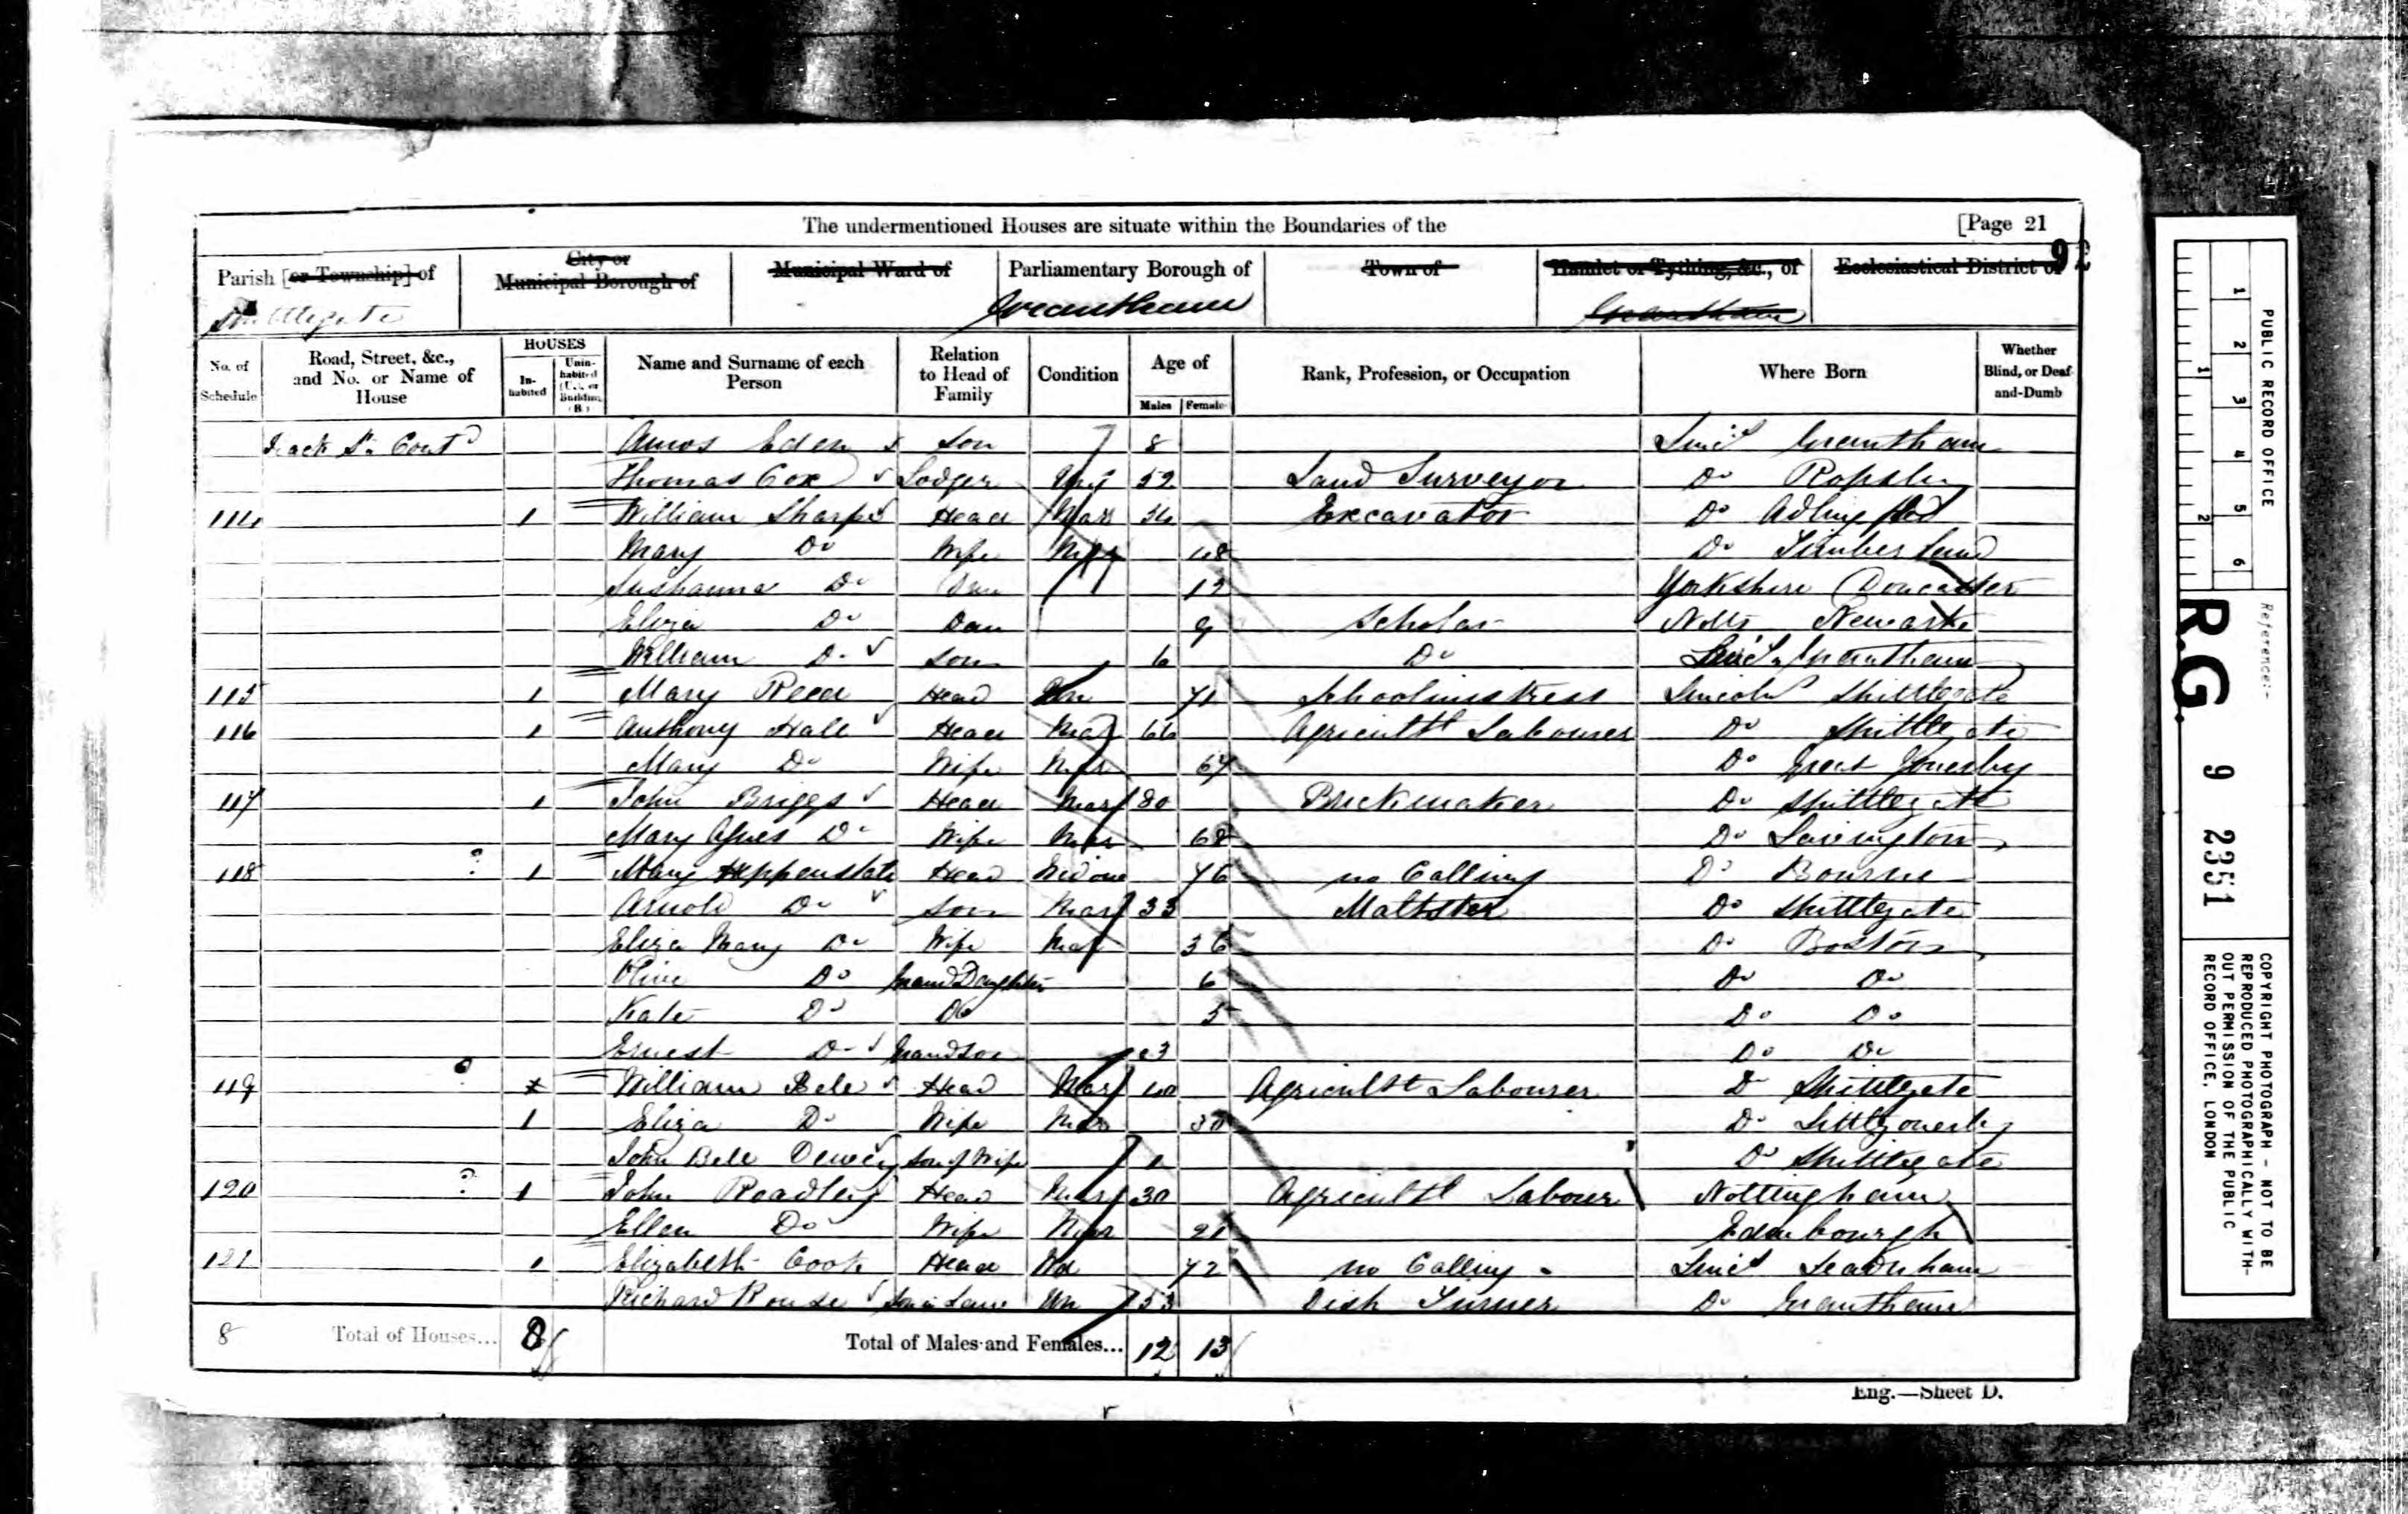 The undermentioned Houses are situate within the Boundaries of the [Page 21
92
Parish [or Township] of Spittlegate
City or Municipal Borough of
Municipal Ward of
Parliamentary Borough of Grantham
Town of
Hamlet or Tything, &c., of Grantham
Ecclesiastical District of
No. of Schedule
Road, Street, &c., and No. or Name of House
HOUSES
Inhabited
Uninhabited (U.), or Building (B.)
Name and Surname of each Person
Relation to Head of Family
Condition
Age of
Males Females
Rank, Profession, or Occupation
Where Born
Whether Blind, or Deaf-and-Dumb
St. Contd Amos Eden Son 8 Lincs Grantham
Thomas Cox Lodger 52 Land Surveyor Do Ropsley
114 1 William Sharpe Head Mar 54 Excavator Do
Mary Do Wife Mar 48 Do Timberland
Sushanna Do Dau 12 Yorkshire Doncaster
Eliza Do Dau 9 Scholar Notts Newark
William Do Son 6 Do Lincs Grantham
115 1 Mary Reed Head Un 71 Schoolmistress Lincoln Spittlegate
116 1 Anthony Hall Head Mar 66 Agricultl Labourer Do Spittlegate
Mary Do Wife Mar 67 Do Great Gonerby
117 1 John Briggs Head Mar 80 Brickmaker Do Spittlegate
Mary Agnes Do Wife Mar 68 Do Lavington
118 ? 1 Mary Head Widow 76 no Calling Do Bourne
Arnold Do Son Mar 33 Maltster Do Spittlegate
Eliza Mary Do Wife Mar 36 Do Boston
Olive Do Grand Daughter 6 Do Do
Kate Do Do 5 Do Do
Ernest Do Grandson 3 Do Do
119 William Bell Head Mar 40 Agricultl Labourer Do Spittlegate
1 Eliza Do Wife Mar 30 Do Little Gonerby
John Bell Son of Wife Do Spittlegate
120 ? 1 John Roadley Head Mar 30 Agricultl Labourer Nottingham
Ellen Do Wife Mar 21 Edenbourgh
121 1 Elizabeth Cook Head Wd 72 no Calling Lincs Leadenham
Richard Rouse Son in Law Un 53 Dish Turner Do Grantham
8 Total of Houses... 8 Total of Males and Females... 12 13
Eng.—Sheet D.
PUBLIC RECORD OFFICE
1 2 3 4 5 6
1 2
Reference:-
R.G. 9 2351
COPYRIGHT PHOTOGRAPH - NOT TO BE
REPRODUCED PHOTOGRAPHICALLY WITH-
OUT PERMISSION OF THE PUBLIC
RECORD OFFICE, LONDON